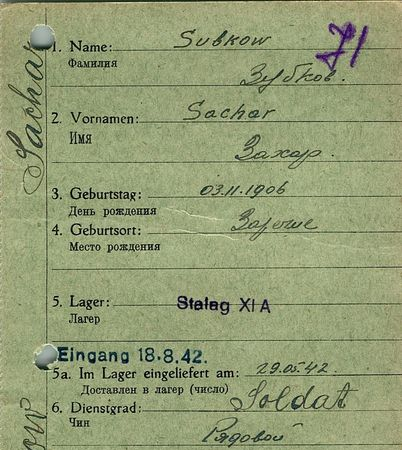 71
1. Name: Subkow
Фамилия
Зубков.
2. Vornamen: Sachar
Имя
Захар.
3. Geburtstag: 03.11.1906
День рождения
4. Geburtsort:
Место рождения
5. Lager: Stalag XI A
Лагерь
Eingang 18.8.42.
5a. Im Lager eingeliefert am: 29.05.42
Доставлен в лагерь (число)
6. Dienstgrad: Soldat
Чин
Рядовой
Sachar
ow